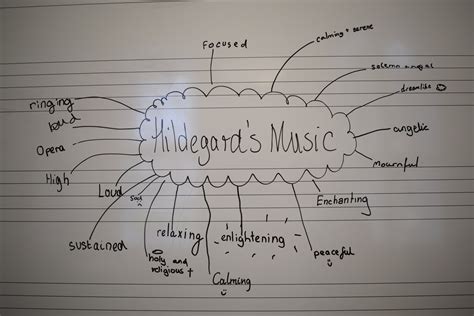 Focused
calming + serene
solemn + regal
dreamlike
ringing
loud
angelic
Opera
Hildegard's Music
mournful
High
Loud
Sad
Enchanting
sustained
holy and
religious
relaxing
enlightening
peaceful
Calming